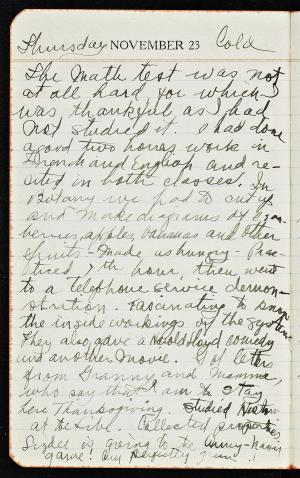 Thursday NOVEMBER 23 Cold
The Math test was not
at all hard for which I
was thankful as I had
not studied it. I had done
a good two hours work in
French and English and re-
cited in both classes. In
Botany we had to cut up
and make diagrams of cran-
berries, apples, bananas and other
fruits - Made us hungry - Prac-
ticed 7th hour, then went
to a telephone service demon-
stration. Fascinating to
the inside workings of the system
They also gave a Harold Lloyd comedy
and another Movie. Got letter
from Granny and Mamma,
who say that I am to stay
here Thanksgiving. Studied
at the Libe. Collected properties,
is going to the Army-Navy
game! Am perfectly green!